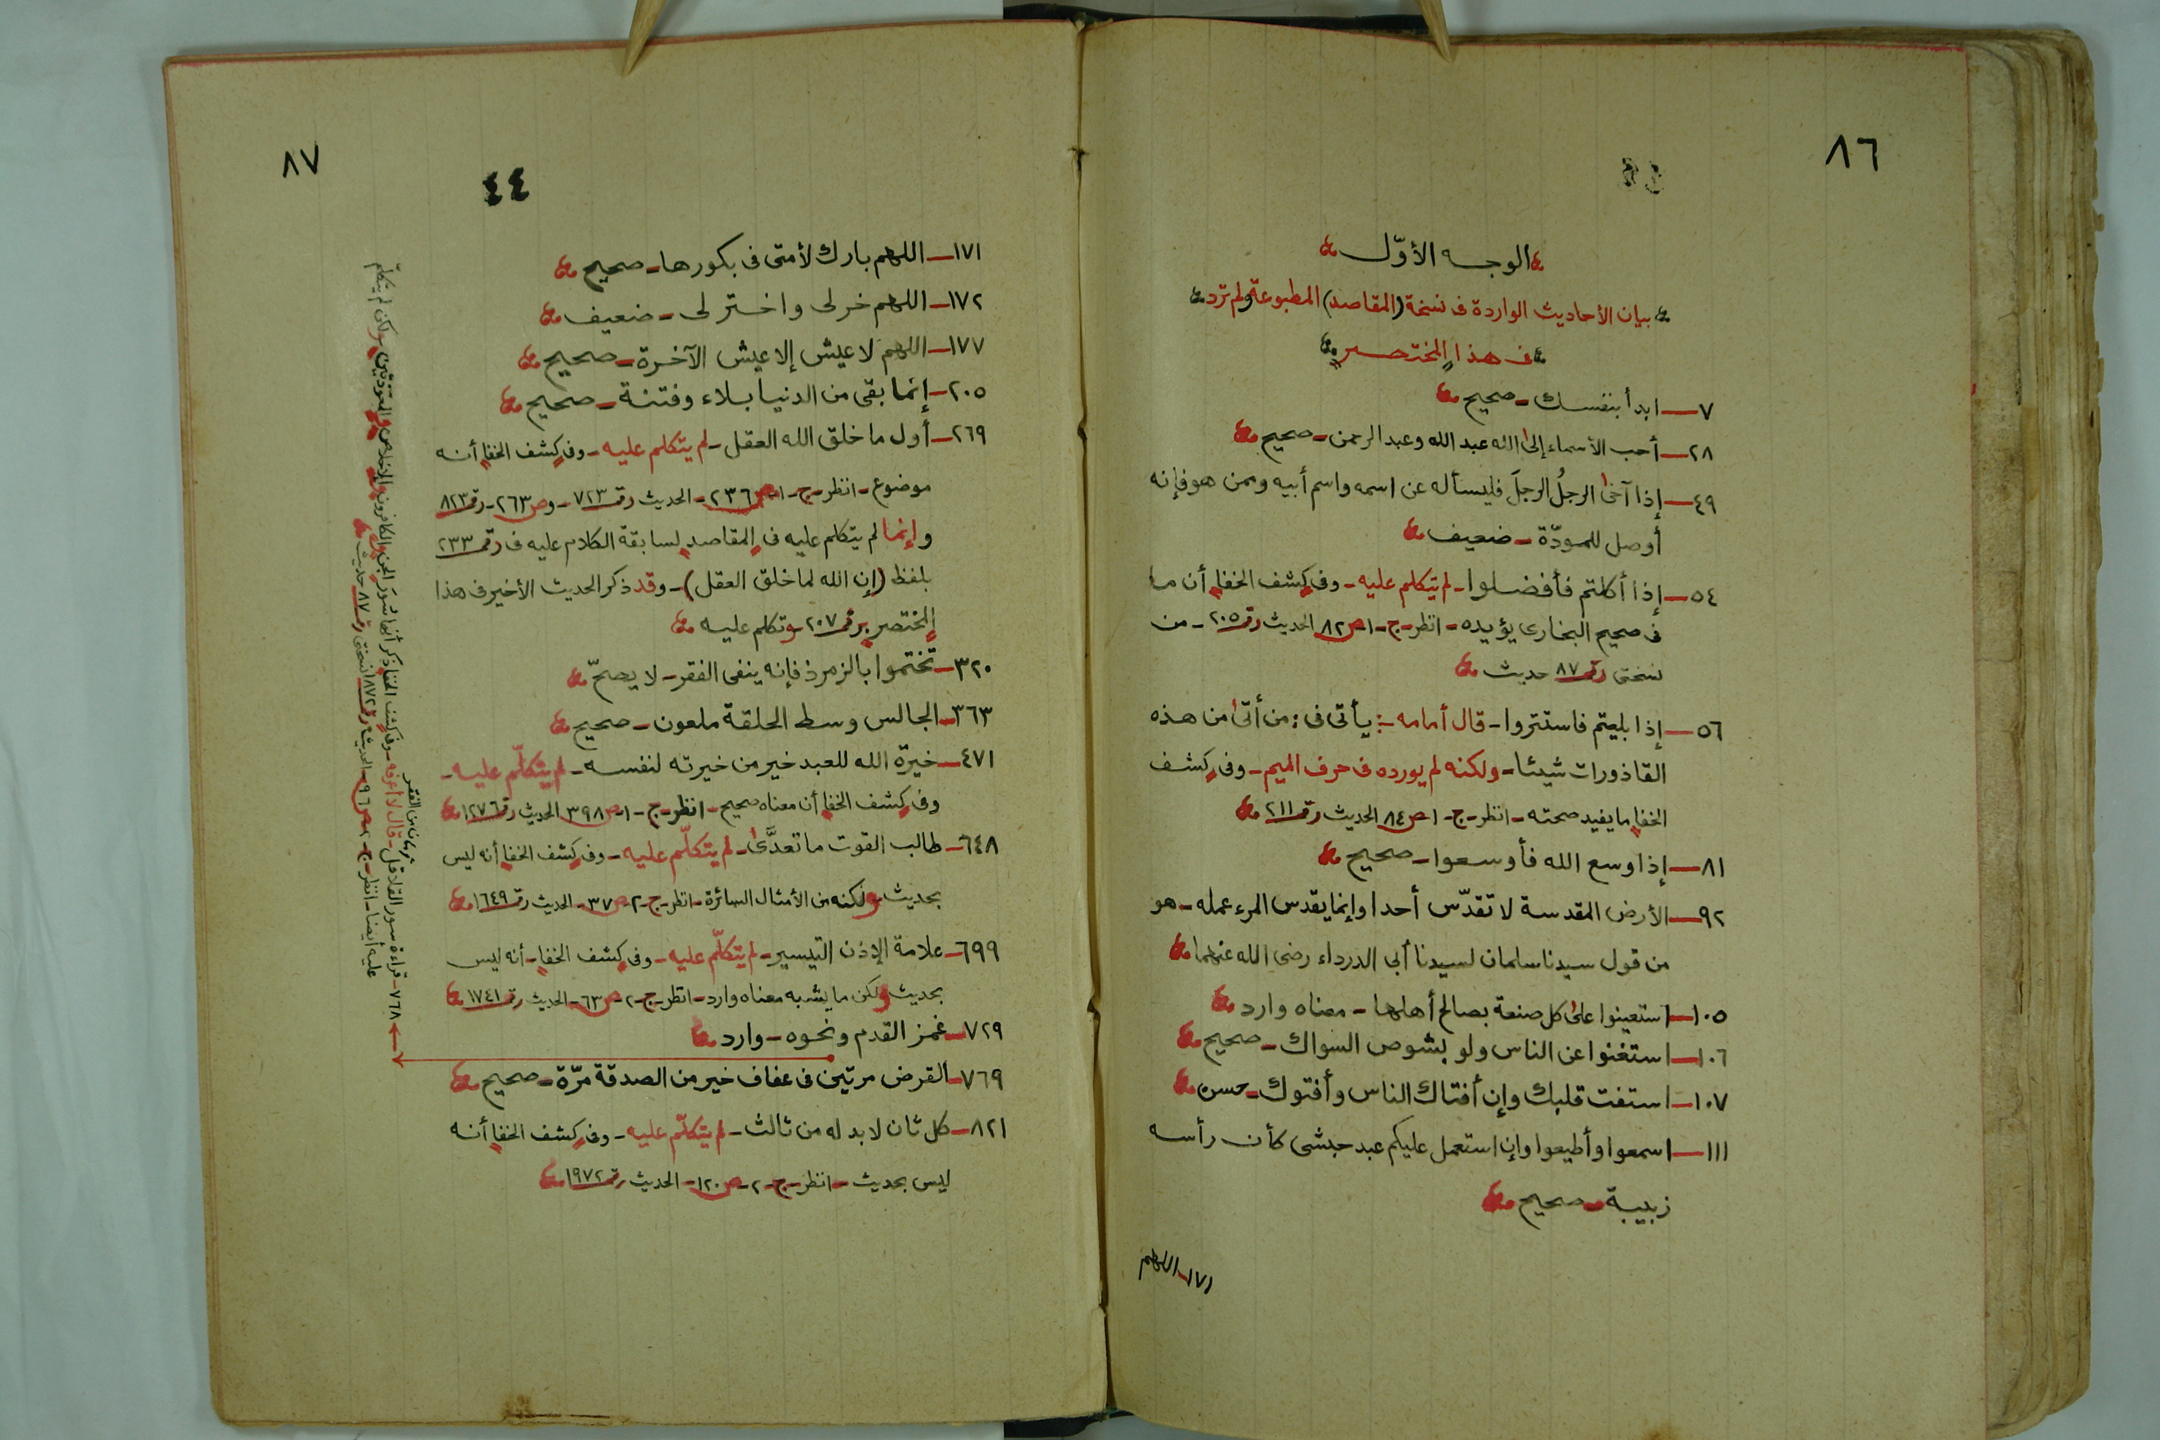 ٨٦
الوجه الأوّل
بيان الأحاديث الواردة فى نسخة (المقاصد) المطبوعة ولم ترد
فى هذا المختصر
٧ــ ابدأ بنفسك ـ صحيح
٢٨ــ أحب الأسماء إلى الله عبد الله وعبد الرحمن ـ صحيح
٤٩ــ إذا آخى الرجلُ الرجلَ فليسأله عن اسمه واسم أبيه وممن هو فإنه
أوصل للمودّة ـ ضعيف
٥٤ــ إذا أكلتم فأفضلوا ـ لم يتكلم عليه ـ وفى كشف الخفا أن ما
فى صحيح البخارى يؤيده ـ انظر ـ ج ـ ١ ص ٨٢ الحديث رقم ٢٠٥ ـ من
نسختى رقم ٨٧ حديث
٥٦ــ إذا بليتم فاستتروا ـ قال أمامه : يأتى فى : من أتى من هذه
القاذورات شيئا ـ ولكنه لم يورده فى حرف الميم ـ وفى كشف
الخفا ما يفيد صحته ـ انظر ـ ج ـ ١ ص ٨٤ الحديث رقم ٢١١
٨١ــ إذا وسع الله فأوسعوا ـ صحيح
٩٢ــ الأرض المقدسة لا تقدّس أحدا وإنما يقدس المرء عمله ـ هو
من قول سيدنا سلمان لسيدنا أبى الدرداء رضى الله عنهما
١٠٥ــ استعينوا على كل صنعة بصالح أهلها ـ معناه وارد
١٠٦ــ استغنوا عن الناس ولو بشوص السواك ـ صحيح
١٠٧ــ استفت قلبك وإن أفتاك الناس وأفتوك ـ حسن
١١١ــ اسمعوا وأطيعوا وإن استعمل عليكم عبد حبشى كأن رأسه
زبيبة ـ صحيح
١٧١ ـ اللهم
٨٧
٤٤
١٧١ــ اللهم بارك لأمتى فى بكورها ـ صحيح
١٧٢ــ اللهم خر لى واختر لى ـ ضعيف
١٧٧ــ اللهم لا عيش إلا عيش الآخرة ـ صحيح
٢٠٥ــ إنما بقى من الدنيا بلاء وفتنة ـ صحيح
٢٦٩ــ أول ما خلق الله العقل ـ لم يتكلم عليه ـ وفى كشف الخفا أنه
موضوع ـ انظر ـ ج ـ ١ ص ٢٣٦ ـ الحديث رقم ٧٢٣ ـ وص ٢٦٣ ـ رقم ٨٢٣
وإنما لم يتكلم عليه فى المقاصد لسابقة الكلام عليه فى رقم ٢٣٣
بلفظ (إن الله لما خلق العقل) ـ وقد ذكر الحديث الأخير فى هذا
المختصر برقم ٢٠٧ وتكلم عليه
٣٢٠ــ تختموا بالزمرذ فإنه ينفى الفقر ـ لا يصحّ
٣٦٣ــ الجالس وسط الحلقة ملعون ـ صحيح
٤٧١ــ خيرة الله للعبد خير من خيرته لنفسه ـ لم يتكلّم عليه ـ
وفى كشف الخفا أن معناه صحيح ـ انظر ـ ج ـ ١ ص ٣٩٨ الحديث رقم ١٢٧٦
٦٤٨ــ طالب القوت ما تعدَّى ـ لم يتكلّم عليه ـ وفى كشف الخفا أنه ليس
بحديث ولكنه من الأمثال السائرة ـ انظر ـ ج ـ ٢ ـ ص ٣٧ ـ الحديث رقم ١٦٤٩
٦٩٩ــ علامة الإذن التيسير ـ لم يتكلّم عليه ـ وفى كشف الخفا ـ أنه ليس
بحديث ولكن ما يشبه معناه وارد ـ انظر ـ ج ـ ٢ ـ ص ٦٣ ـ الحديث رقم ١٧٤١
٧٢٩ــ غمز القدم ونحوه ـ وارد
٧٦٩ــ القرض مرتين فى عفاف خير من الصدقة مرّة ـ صحيح
٨٢١ــ كل ثان لا بد له من ثالث ـ لم يتكلّم عليه ـ وفى كشف الخفا أنه
ليس بحديث ـ انظر ـ ج ـ ٢ ـ ص ١٢٠ ـ الحديث رقم ١٩٧٢
٧٦٨ ـ قراءة سور القلاقل ـ قال لا أعرفه ـ وفى كشف الخفا ذكر أنها سُوَر الجن والكافرون والإخلاص والمعوّذتين ولكن لم يتكلّم
أمان من الفقر
عليه أيضا ـ انظر ـ ج ـ ٢ ـ ص ٩٦ ـ الحديث رقم ١٨٧٢ نسختى رقم ٨٧ حديث